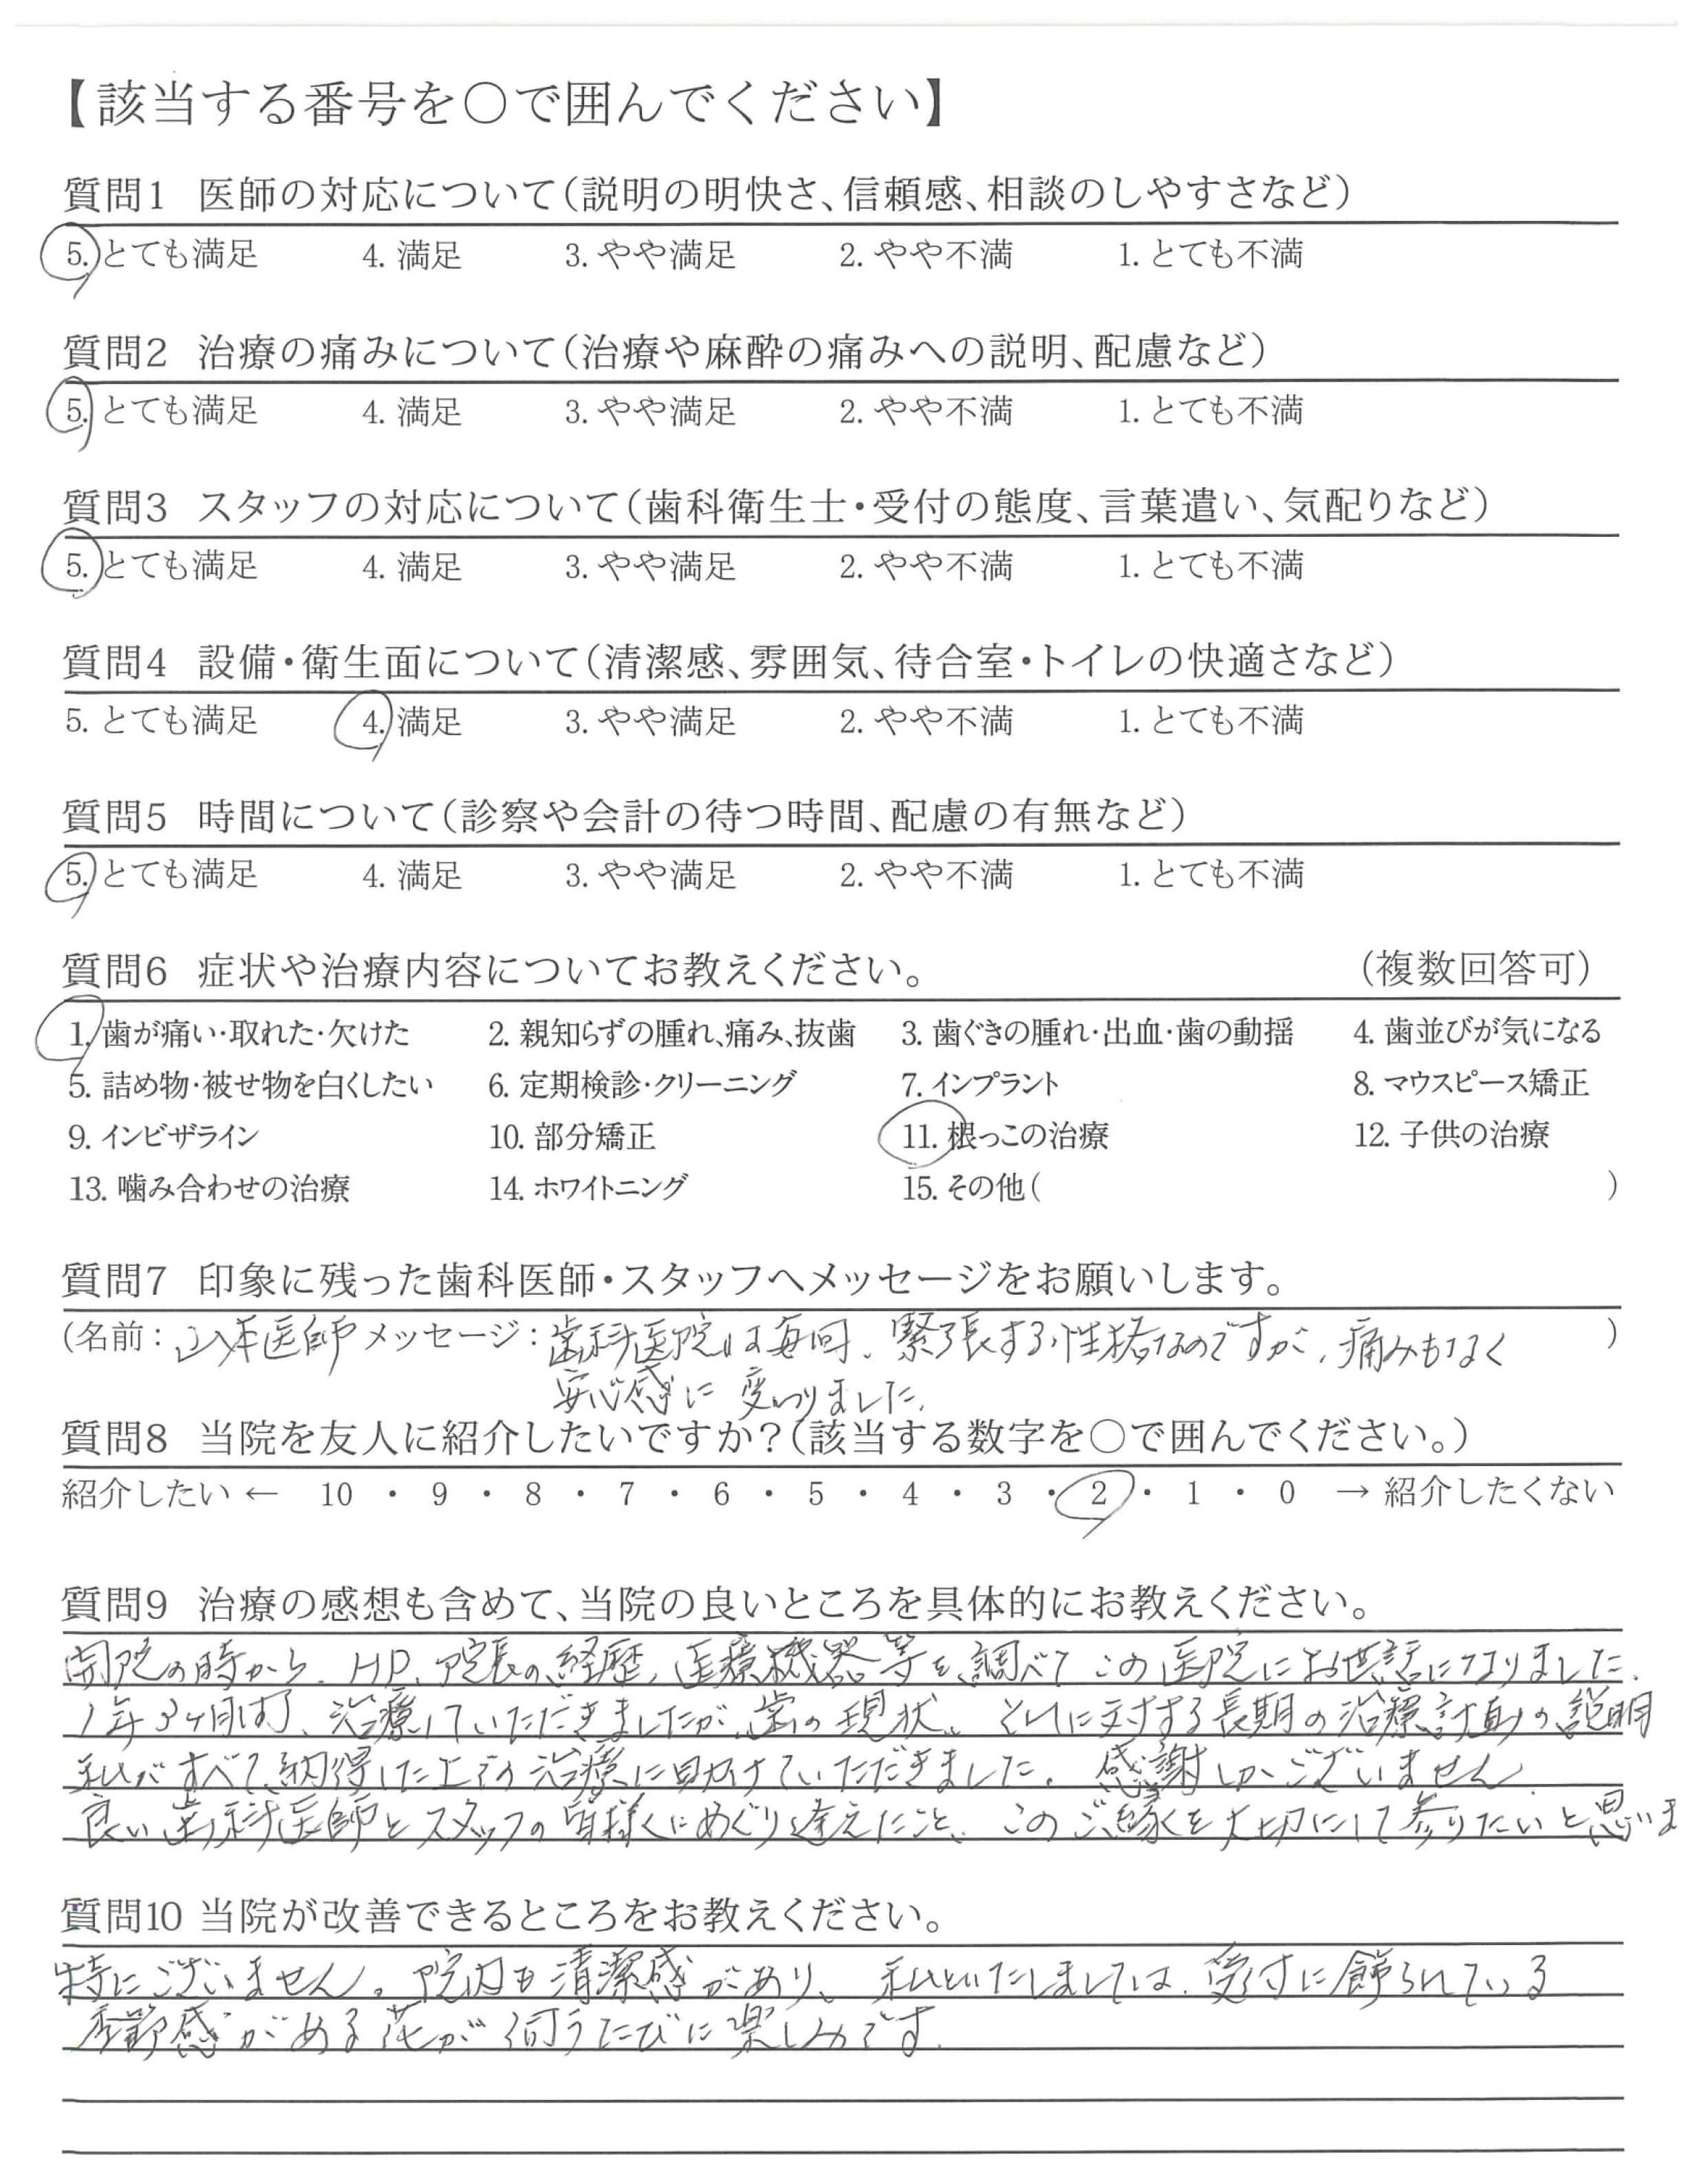 【該当する番号を○で囲んでください】
質問1 医師の対応について(説明の明快さ、信頼感、相談のしやすさなど)
5. とても満足 4. 満足 3. やや満足 2. やや不満 1. とても不満
質問2 治療の痛みについて(治療や麻酔の痛みへの説明、配慮など)
5. とても満足 4. 満足 3. やや満足 2. やや不満 1. とても不満
質問3 スタッフの対応について(歯科衛生士・受付の態度、言葉遣い、気配りなど)
5. とても満足 4. 満足 3. やや満足 2. やや不満 1. とても不満
質問4 設備・衛生面について(清潔感、雰囲気、待合室・トイレの快適さなど)
5. とても満足 4. 満足 3. やや満足 2. やや不満 1. とても不満
質問5 時間について(診察や会計の待つ時間、配慮の有無など)
5. とても満足 4. 満足 3. やや満足 2. やや不満 1. とても不満
質問6 症状や治療内容についてお教えください。 (複数回答可)
1. 歯が痛い・取れた・欠けた 2. 親知らずの腫れ、痛み、抜歯 3. 歯ぐきの腫れ・出血・歯の動揺 4. 歯並びが気になる
5. 詰め物・被せ物を白くしたい 6. 定期検診・クリーニング 7. インプラント 8. マウスピース矯正
9. インビザライン 10. 部分矯正 11. 根っこの治療 12. 子供の治療
13. 噛み合わせの治療 14. ホワイトニング 15. その他( )
質問7 印象に残った歯科医師・スタッフへメッセージをお願いします。
(名前: 医師 メッセージ: 歯科医院は毎回、緊張する性格なのですが、痛みもなく )
安心感に変わりました。
質問8 当院を友人に紹介したいですか?(該当する数字を○で囲んでください。)
紹介したい ← 10 ・ 9 ・ 8 ・ 7 ・ 6 ・ 5 ・ 4 ・ 3 ・ 2 ・ 1 ・ 0 → 紹介したくない
質問9 治療の感想も含めて、当院の良いところを具体的にお教えください。
開院の時から、HP、院長の経歴、医療機器等を調べてこの医院にお世話になりました。
1年3ヶ月間、治療していただきましたが、歯の現状、それに対する長期の治療計画の説明
私がすべて納得した上での治療に助けていただきました。感謝しかございません。
良い歯科医師とスタッフの皆様にめぐり逢えたこと、このご縁を大切にして参りたいと思いま
質問10 当院が改善できるところをお教えください。
特にございません。院内も清潔感があり、私といたしましては、受付に飾られている
季節感がある花が伺うたびに楽しみです。